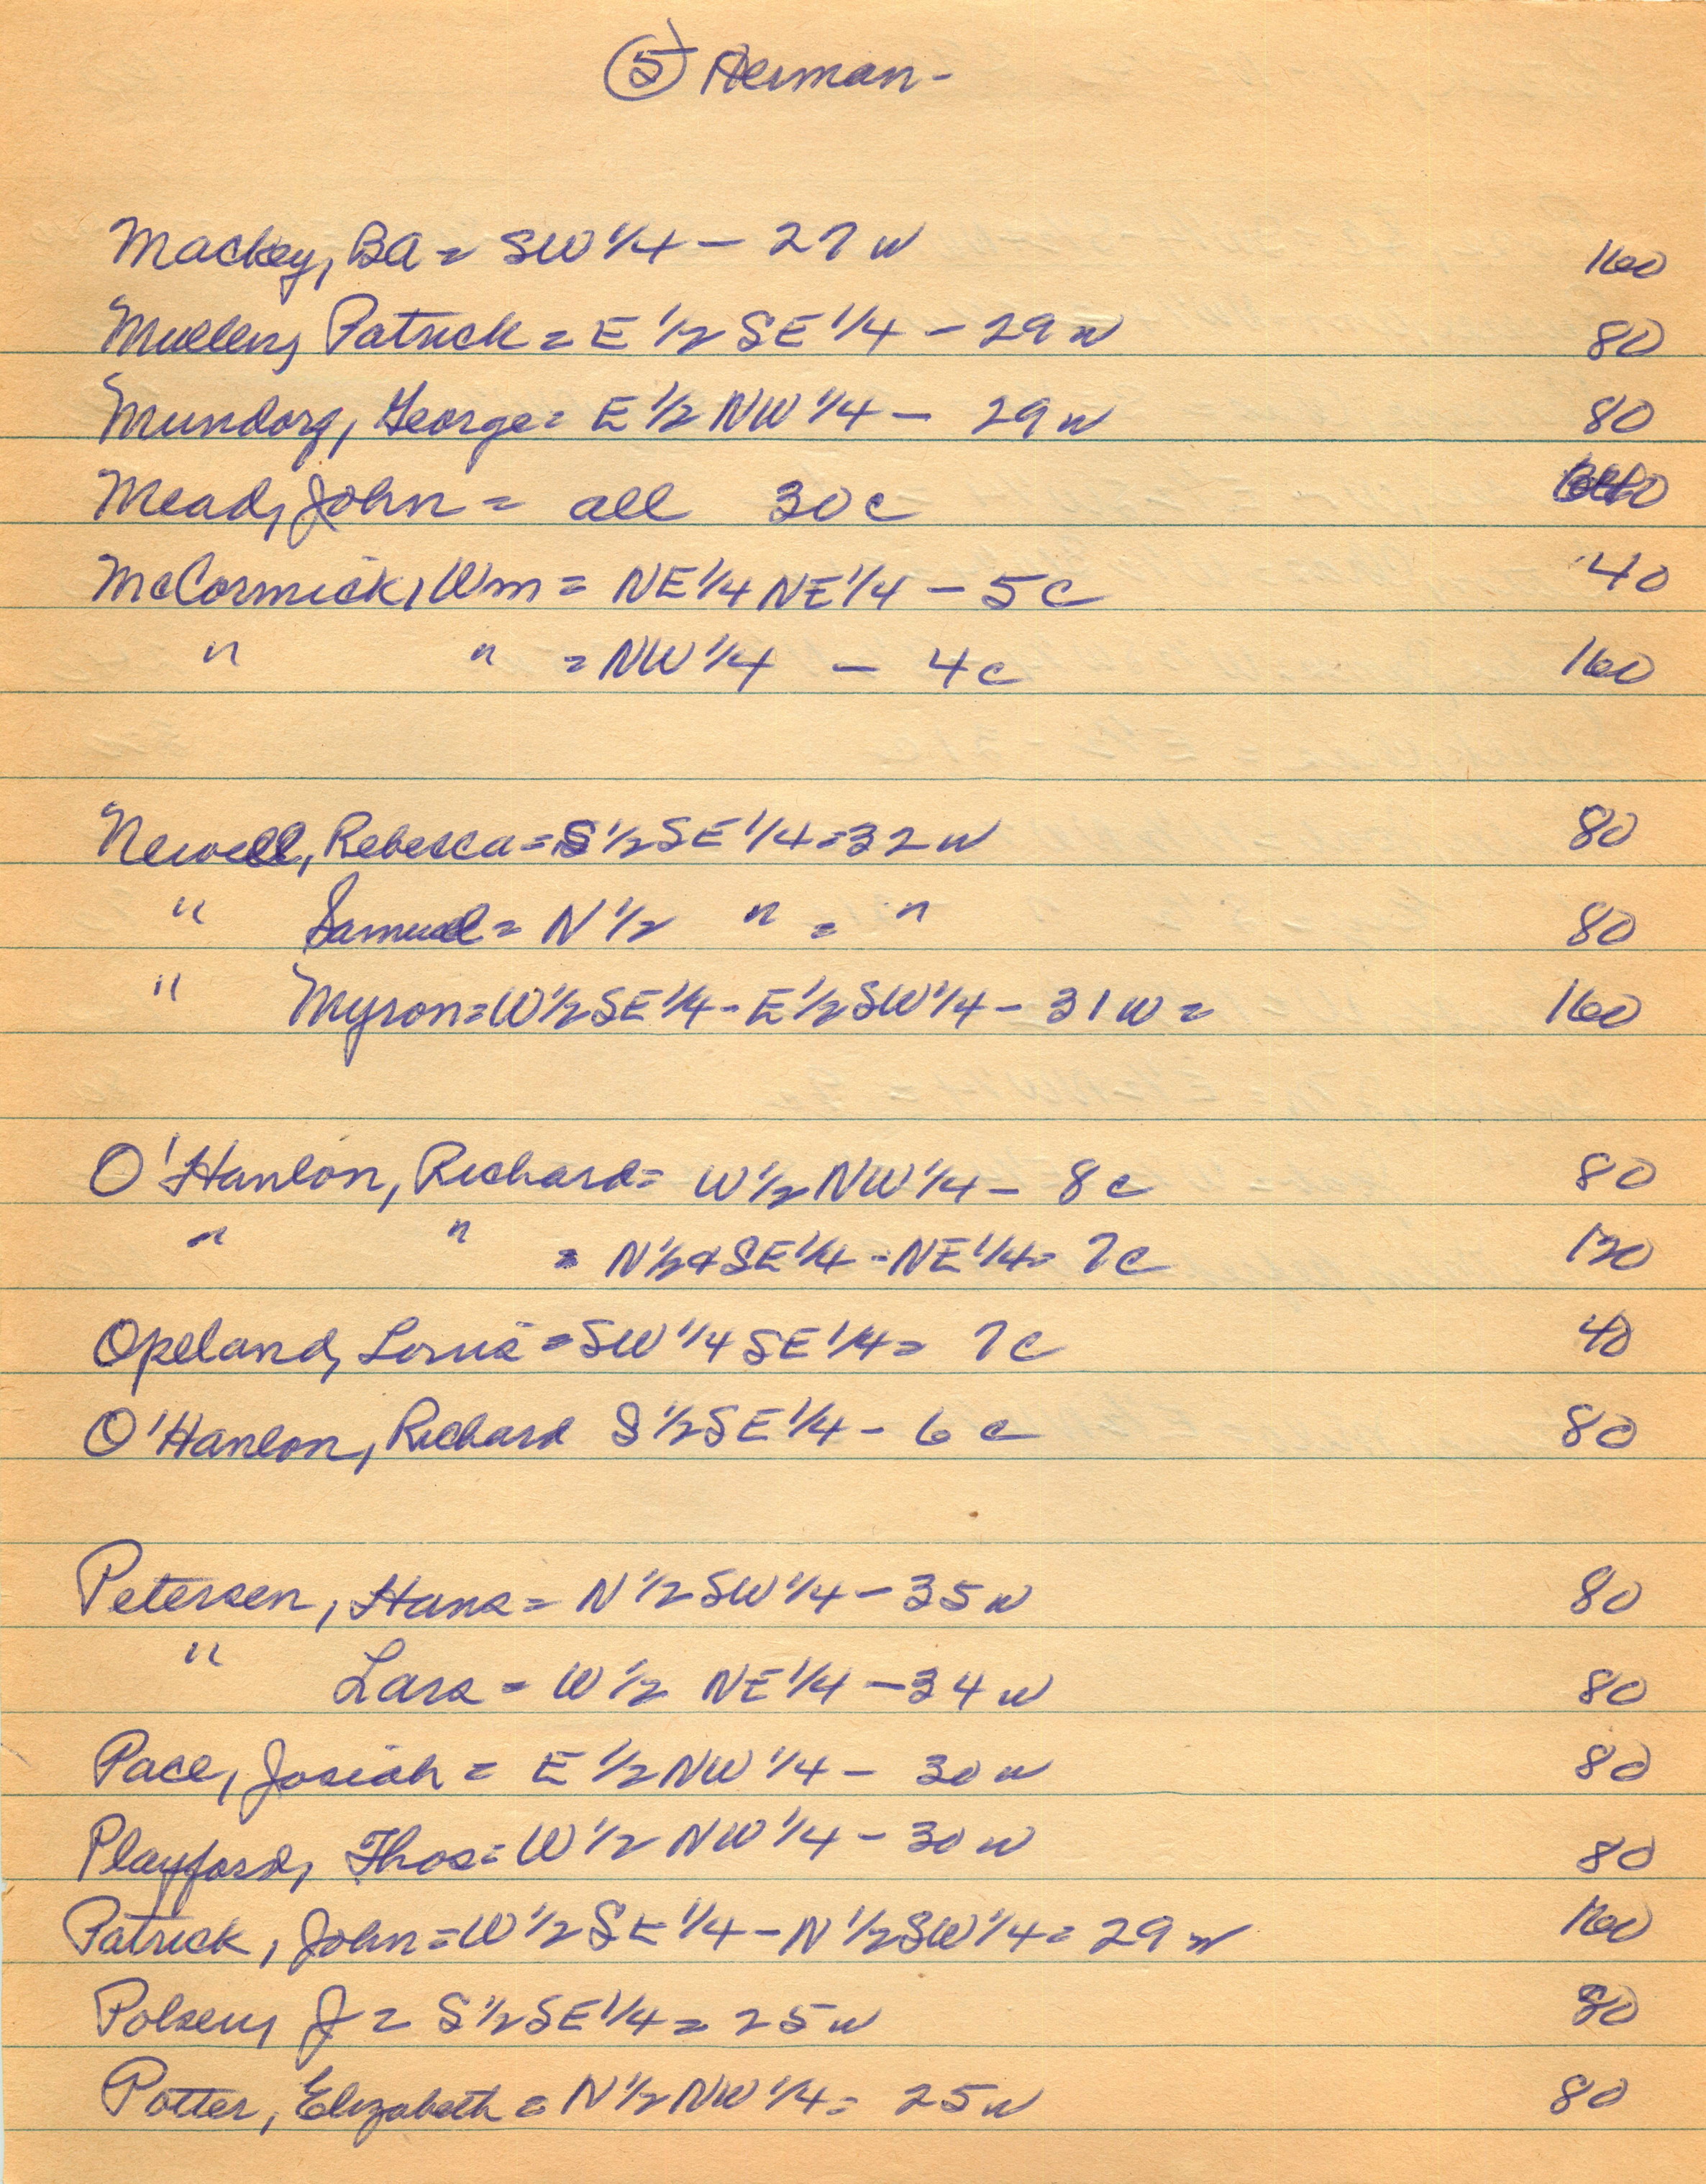 ⑤ Herman -
Mackey, BA = SW 1/4 - 27 W 160
Mullen, Patrick = E 1/2 SE 1/4 - 29 W 80
Mundorg, George = E 1/2 NW 1/4 - 29 W 80
Mead, John = all 30 C
McCormick, Wm = NE 1/4 NE 1/4 - 5 C 40
" " = NW 1/4 - 4 C 160
Newell, Rebecca = S 1/2 SE 1/4 = 32 W 80
" Samuel = N 1/2 " = " 80
" Myron = W 1/2 SE 1/4 - E 1/2 SW 1/4 - 31 W = 160
O'Hanlon, Richard = W 1/2 NW 1/4 - 8 C 80
" " = N 1/2 & SE 1/4 - NE 1/4 = 7 C 120
Opeland, = SW 1/4 SE 1/4 = 7 C 40
O'Hanlon, Richard S 1/2 SE 1/4 - 6 C 80
Petersen, Hans = N 1/2 SW 1/4 - 35 W 80
" Lars = W 1/2 NE 1/4 - 34 W 80
Pace, Josiah = E 1/2 NW 1/4 - 30 W 80
Playford, Thos = W 1/2 NW 1/4 - 30 W 80
Patrick, John = W 1/2 SE 1/4 - N 1/2 SW 1/4 = 29 W 160
Polsen, J = S 1/2 SE 1/4 = 25 W 80
Potter, Elizabeth = N 1/2 NW 1/4 = 25 W 80